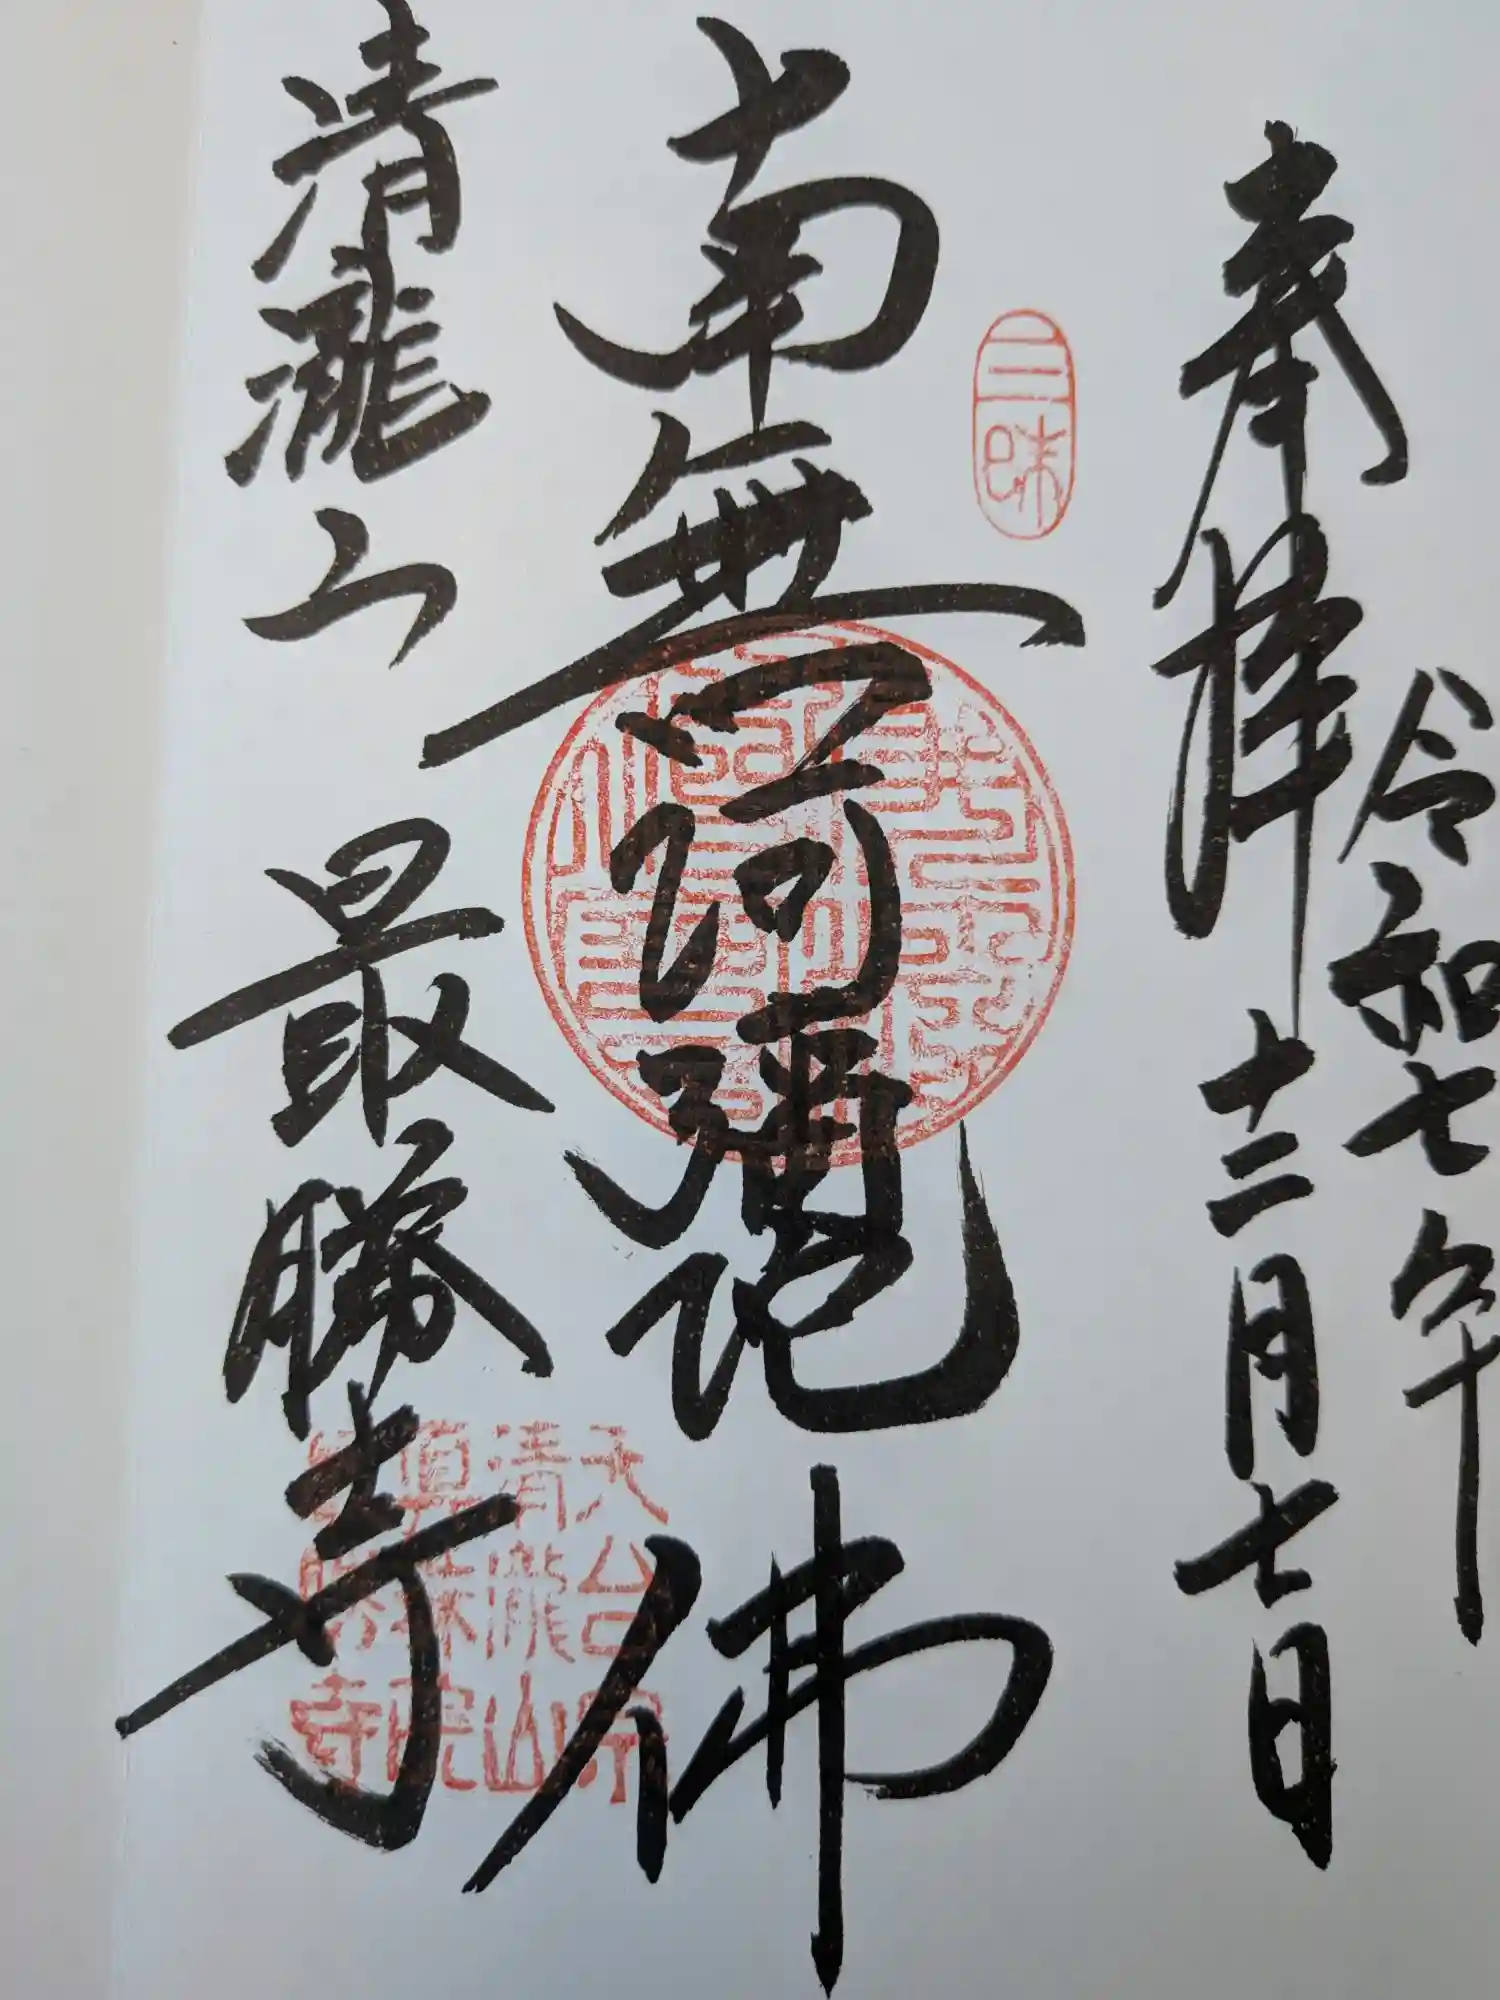 奉拝
令和七年
十二月七日
三昧
南無阿彌陀佛
清瀧山 最勝寺
天台宗
清瀧山
院
寺